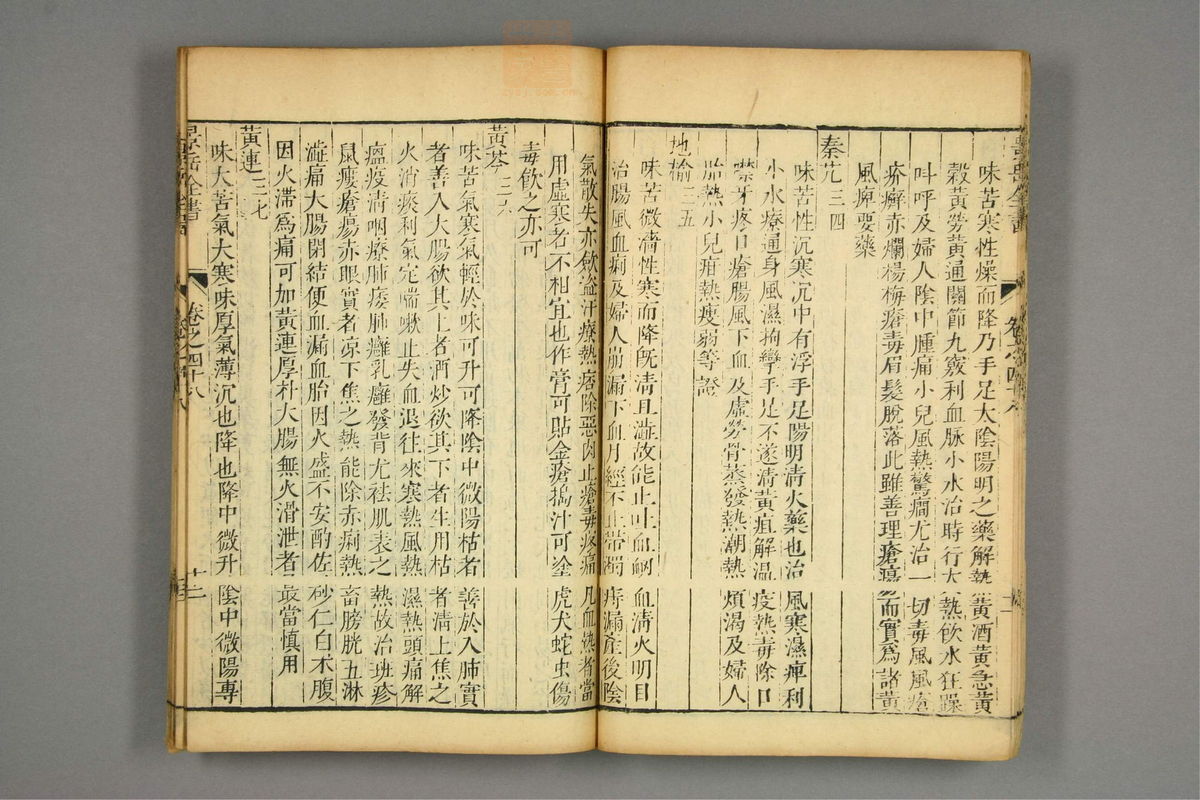 味苦寒性燥而降乃手足太陰陽明之藥解熱黃酒黃急黃
穀黃勞黃通關節九竅利血脉小水治時行大熱飲水狂躁
叫呼及婦人陰中腫痛小兒風熱驚癎尤治一切毒風風瘡
疥癬赤爛楊梅瘡毒眉髮脫落此雖善理瘡瘍而實爲諸黃
風痺要藥
秦艽三四
味苦性沉寒沉中有浮手足陽明清火藥也治風寒濕痺利
小水療通身風濕拘攣手足不遂清黃疸解温疫熱毒除口
噤牙疼口瘡腸風下血及虛勞骨蒸發熱潮熱煩渴及婦人
胎熱小兒疳熱瘦弱等證
地榆三五
味苦微濇性寒而降既清且澁故能止吐血衂血清火明目
治腸風血痢及婦人崩漏下血月經不止帶濁痔漏產後陰
氣散失亦歛盜汗療熱痞除惡肉止瘡毒疼痛凡血熱者當
用虛寒者不相宜也作膏可貼金瘡搗汁可塗虎犬蛇虫傷
毒飲之亦可
黃芩三六
味苦氣寒氣輕於味可升可降陰中微陽枯者善於入肺實
者善入大腸欲其上者酒炒欲其下者生用枯者清上焦之
火消痰利氣定喘嗽止失血退往來寒熱風熱濕熱頭痛解
瘟疫清咽療肺痿肺癰乳癰發背尤祛肌表之熱故治斑疹
鼠瘻瘡瘍赤眼實者凉下焦之熱能除赤痢熱畜膀胱五淋
澁痛大腸閉結便血漏血胎因火盛不安酌佐砂仁白术腹
因火滯爲痛可加黃連厚朴大腸無火滑泄者最當慎用
黃連三七
味大苦氣大寒味厚氣薄沉也降也降中微升陰中微陽專
景岳全書
卷之四十八